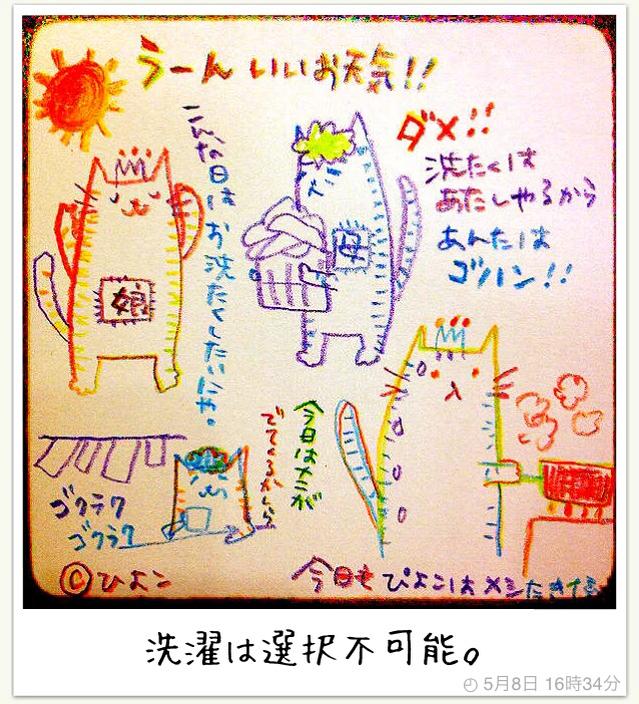 うーん いいお天気!!
こんな日はお洗たくしたいにゃ。
娘
母
ダメ!!
洗たくは
あたしやるから
あんたは
ゴハン!!
今日はナニが
でてくるかしら
ゴクラク
ゴクラク
©ひよこ
今日もぴよこはメシたきです
洗濯は選択不可能。
5月8日 16時34分